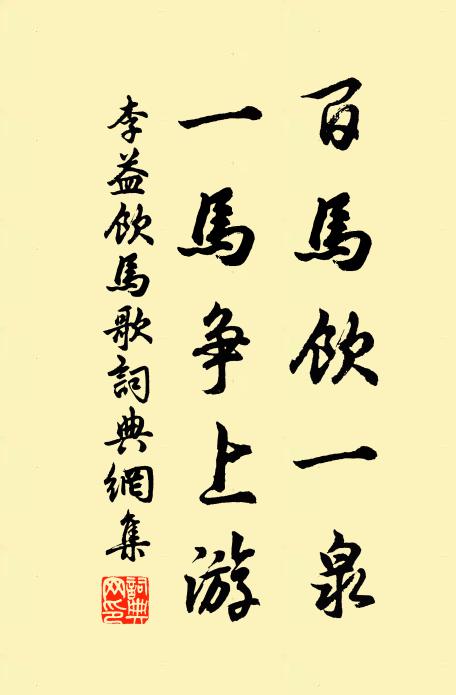 百馬飲一泉
一馬争上游
李益飲馬歌詞典網集
詞典网印